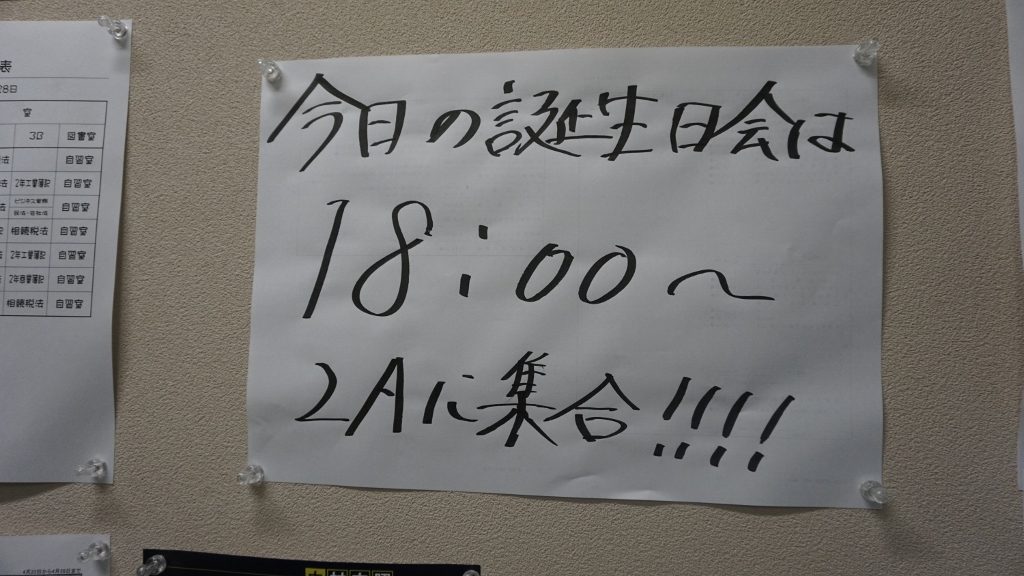 今日の誕生日会は
18:00〜
2Aに集合!!!!
表
28日
空
3B 図書室
自習室
2年工業簿記 自習室
自習室
相続税法 自習室
2年工業簿記 自習室
2年商業簿記 自習室
相続税法 自習室